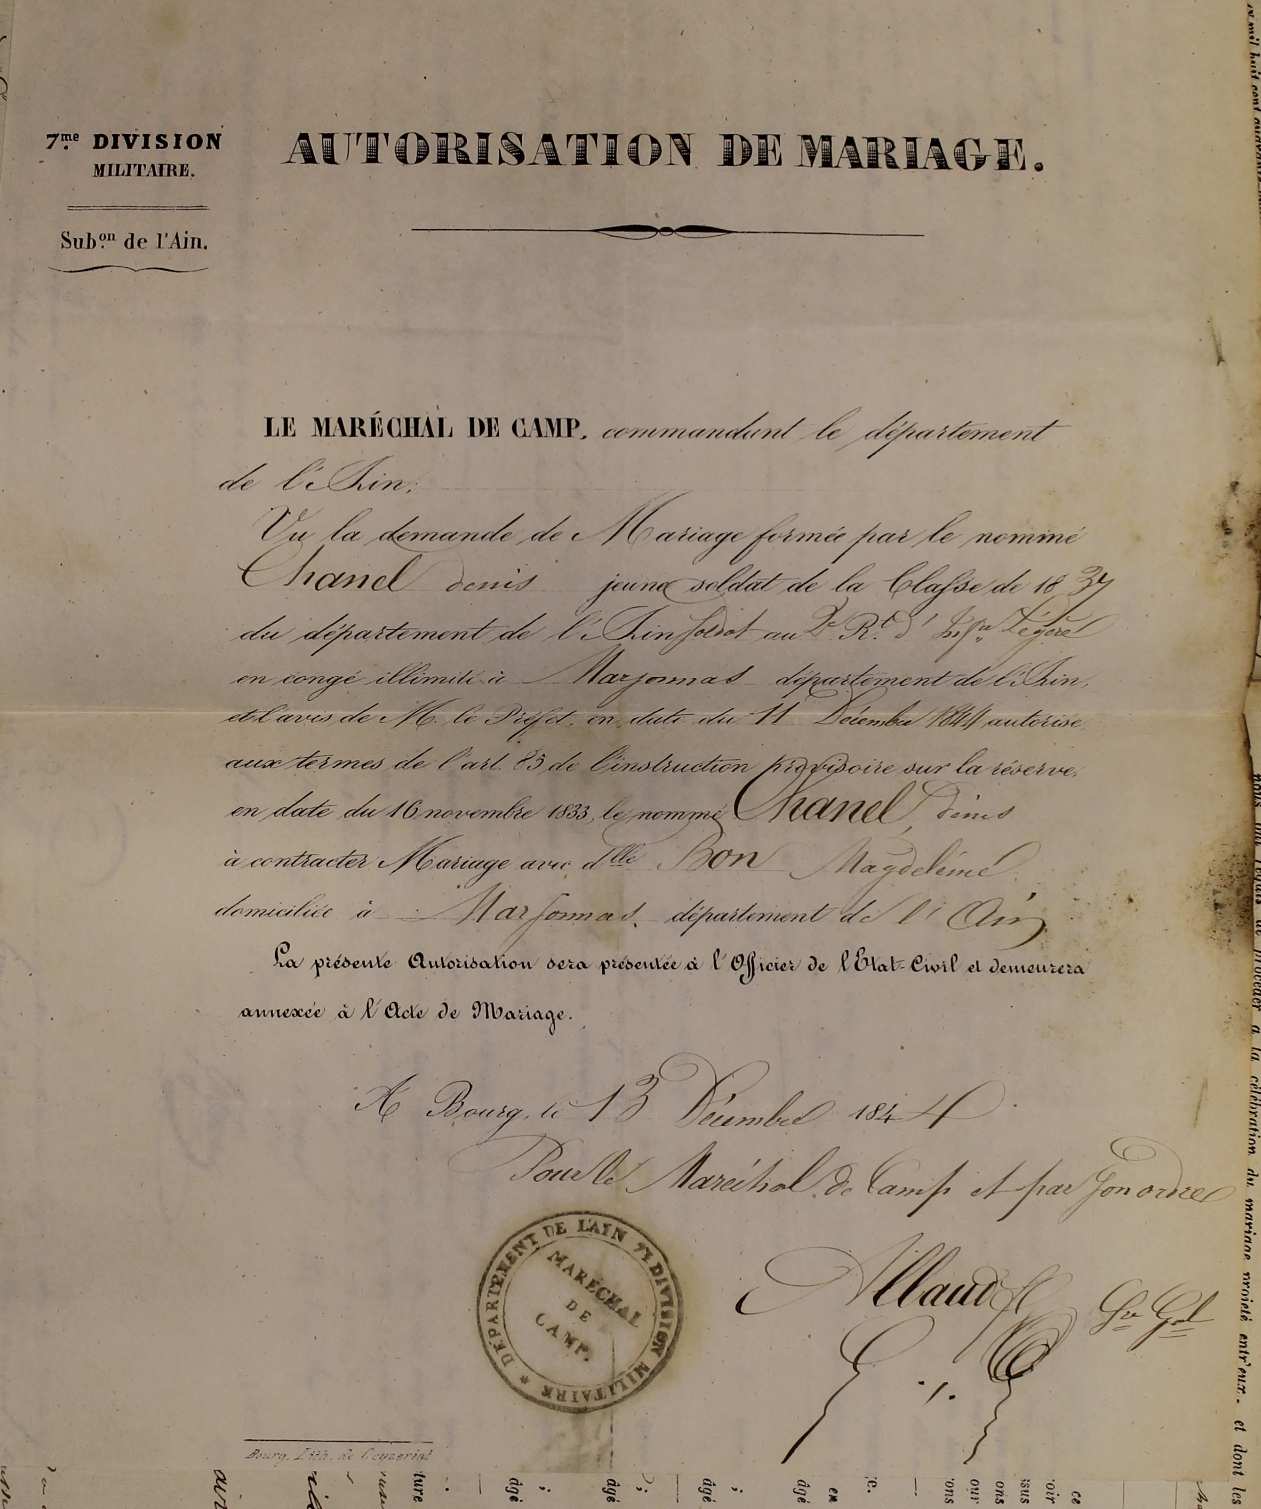 7.me DIVISION
MILITAIRE.
Sub.on de l'Ain.
AUTORISATION DE MARIAGE.
LE MARÉCHAL DE CAMP, commandant le département
de l'Ain;
Vu la demande de Mariage formée par le nommé
Chanel denis jeune soldat de la Classe de 1837
du département de l'Ain soldat au 2e R.t d' Inf.ie Légere
en congé illimité à Marsonnas département de l'Ain,
et l'avis de M. le Préfet, en date du 11 Décembre 1844 autorise,
aux termes de l'art. 83, de l'instruction provisoire sur la réserve,
en date du 16 novembre 1833, le nommé Chanel, Denis
à contracter Mariage avec d.lle Bon Magdeleine
domiciliée à Marsonnas, département de l'Ain
La présente Autorisation sera présentée à l'Officier de l'Etat-Civil et demeurera
annexée à l'Acte de Mariage.
A Bourg, le 13 Décembre 1844
Pour le Maréchal de Camp et par son ordre
Allaud
DÉPARTEMENT DE L'AIN 7E DIVISION MILITAIRE *
MARÉCHAL
DE
CAMP.
Bourg, Lith. de Ceyzeriat
de procéder à la célébration du mariage projeté entr'eux, et dont les